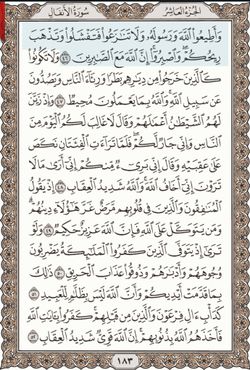 الجزء العاشر
سورة الأنفال
وَأَطِيعُوا۟ ٱللَّهَ وَرَسُولَهُۥ وَلَا تَنَـٰزَعُوا۟ فَتَفْشَلُوا۟ وَتَذْهَبَ
رِيحُكُمْ ۖ وَٱصْبِرُوٓا۟ ۚ إِنَّ ٱللَّهَ مَعَ ٱلصَّـٰبِرِينَ ٤٦ وَلَا تَكُونُوا۟
كَٱلَّذِينَ خَرَجُوا۟ مِن دِيَـٰرِهِم بَطَرًا وَرِئَآءَ ٱلنَّاسِ وَيَصُدُّونَ
عَن سَبِيلِ ٱللَّهِ ۚ وَٱللَّهُ بِمَا يَعْمَلُونَ مُحِيطٌ ٤٧ وَإِذْ زَيَّنَ
لَهُمُ ٱلشَّيْطَـٰنُ أَعْمَـٰلَهُمْ وَقَالَ لَا غَالِبَ لَكُمُ ٱلْيَوْمَ مِنَ
ٱلنَّاسِ وَإِنِّى جَارٌ لَّكُمْ ۖ فَلَمَّا تَرَآءَتِ ٱلْفِئَتَانِ نَكَصَ
عَلَىٰ عَقِبَيْهِ وَقَالَ إِنِّى بَرِىٓءٌ مِّنكُمْ إِنِّىٓ أَرَىٰ مَا لَا
تَرَوْنَ إِنِّىٓ أَخَافُ ٱللَّهَ ۚ وَٱللَّهُ شَدِيدُ ٱلْعِقَابِ ٤٨ إِذْ يَقُولُ
ٱلْمُنَـٰفِقُونَ وَٱلَّذِينَ فِى قُلُوبِهِم مَّرَضٌ غَرَّ هَـٰٓؤُلَآءِ دِينُهُمْ ۗ
وَمَن يَتَوَكَّلْ عَلَى ٱللَّهِ فَإِنَّ ٱللَّهَ عَزِيزٌ حَكِيمٌ ٤٩ وَلَوْ
تَرَىٰٓ إِذْ يَتَوَفَّى ٱلَّذِينَ كَفَرُوا۟ ۙ ٱلْمَلَـٰٓئِكَةُ يَضْرِبُونَ
وُجُوهَهُمْ وَأَدْبَـٰرَهُمْ وَذُوقُوا۟ عَذَابَ ٱلْحَرِيقِ ٥٠ ذَٰلِكَ
بِمَا قَدَّمَتْ أَيْدِيكُمْ وَأَنَّ ٱللَّهَ لَيْسَ بِظَلَّـٰمٍ لِّلْعَبِيدِ ٥١
كَدَأْبِ ءَالِ فِرْعَوْنَ ۙ وَٱلَّذِينَ مِن قَبْلِهِمْ ۚ كَفَرُوا۟ بِـَٔايَـٰتِ ٱللَّهِ
فَأَخَذَهُمُ ٱللَّهُ بِذُنُوبِهِمْ ۗ إِنَّ ٱللَّهَ قَوِىٌّ شَدِيدُ ٱلْعِقَابِ ٥٢
١٨٣